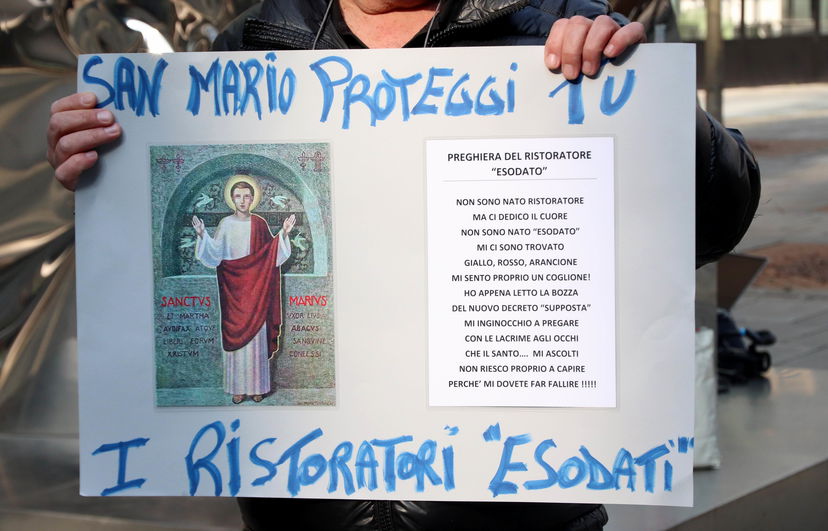 SAN MARIO PROTEGGI TU
SANCTVS MARIVS
ET MARTHA VXOR EIVS
AVDIFAX ATQVE ABACVS
LIBERI EORVM SANGVINE
XRISTVM CONFESSI
PREGHIERA DEL RISTORATORE
“ESODATO”
NON SONO NATO RISTORATORE
MA CI DEDICO IL CUORE
NON SONO NATO “ESODATO”
MI CI SONO TROVATO
GIALLO, ROSSO, ARANCIONE
MI SENTO PROPRIO UN COGLIONE!
HO APPENA LETTO LA BOZZA
DEL NUOVO DECRETO “SUPPOSTA”
MI INGINOCCHIO A PREGARE
CON LE LACRIME AGLI OCCHI
CHE IL SANTO…. MI ASCOLTI
NON RIESCO PROPRIO A CAPIRE
PERCHE’ MI DOVETE FAR FALLIRE !!!!!
I RISTORATORI "ESODATI"